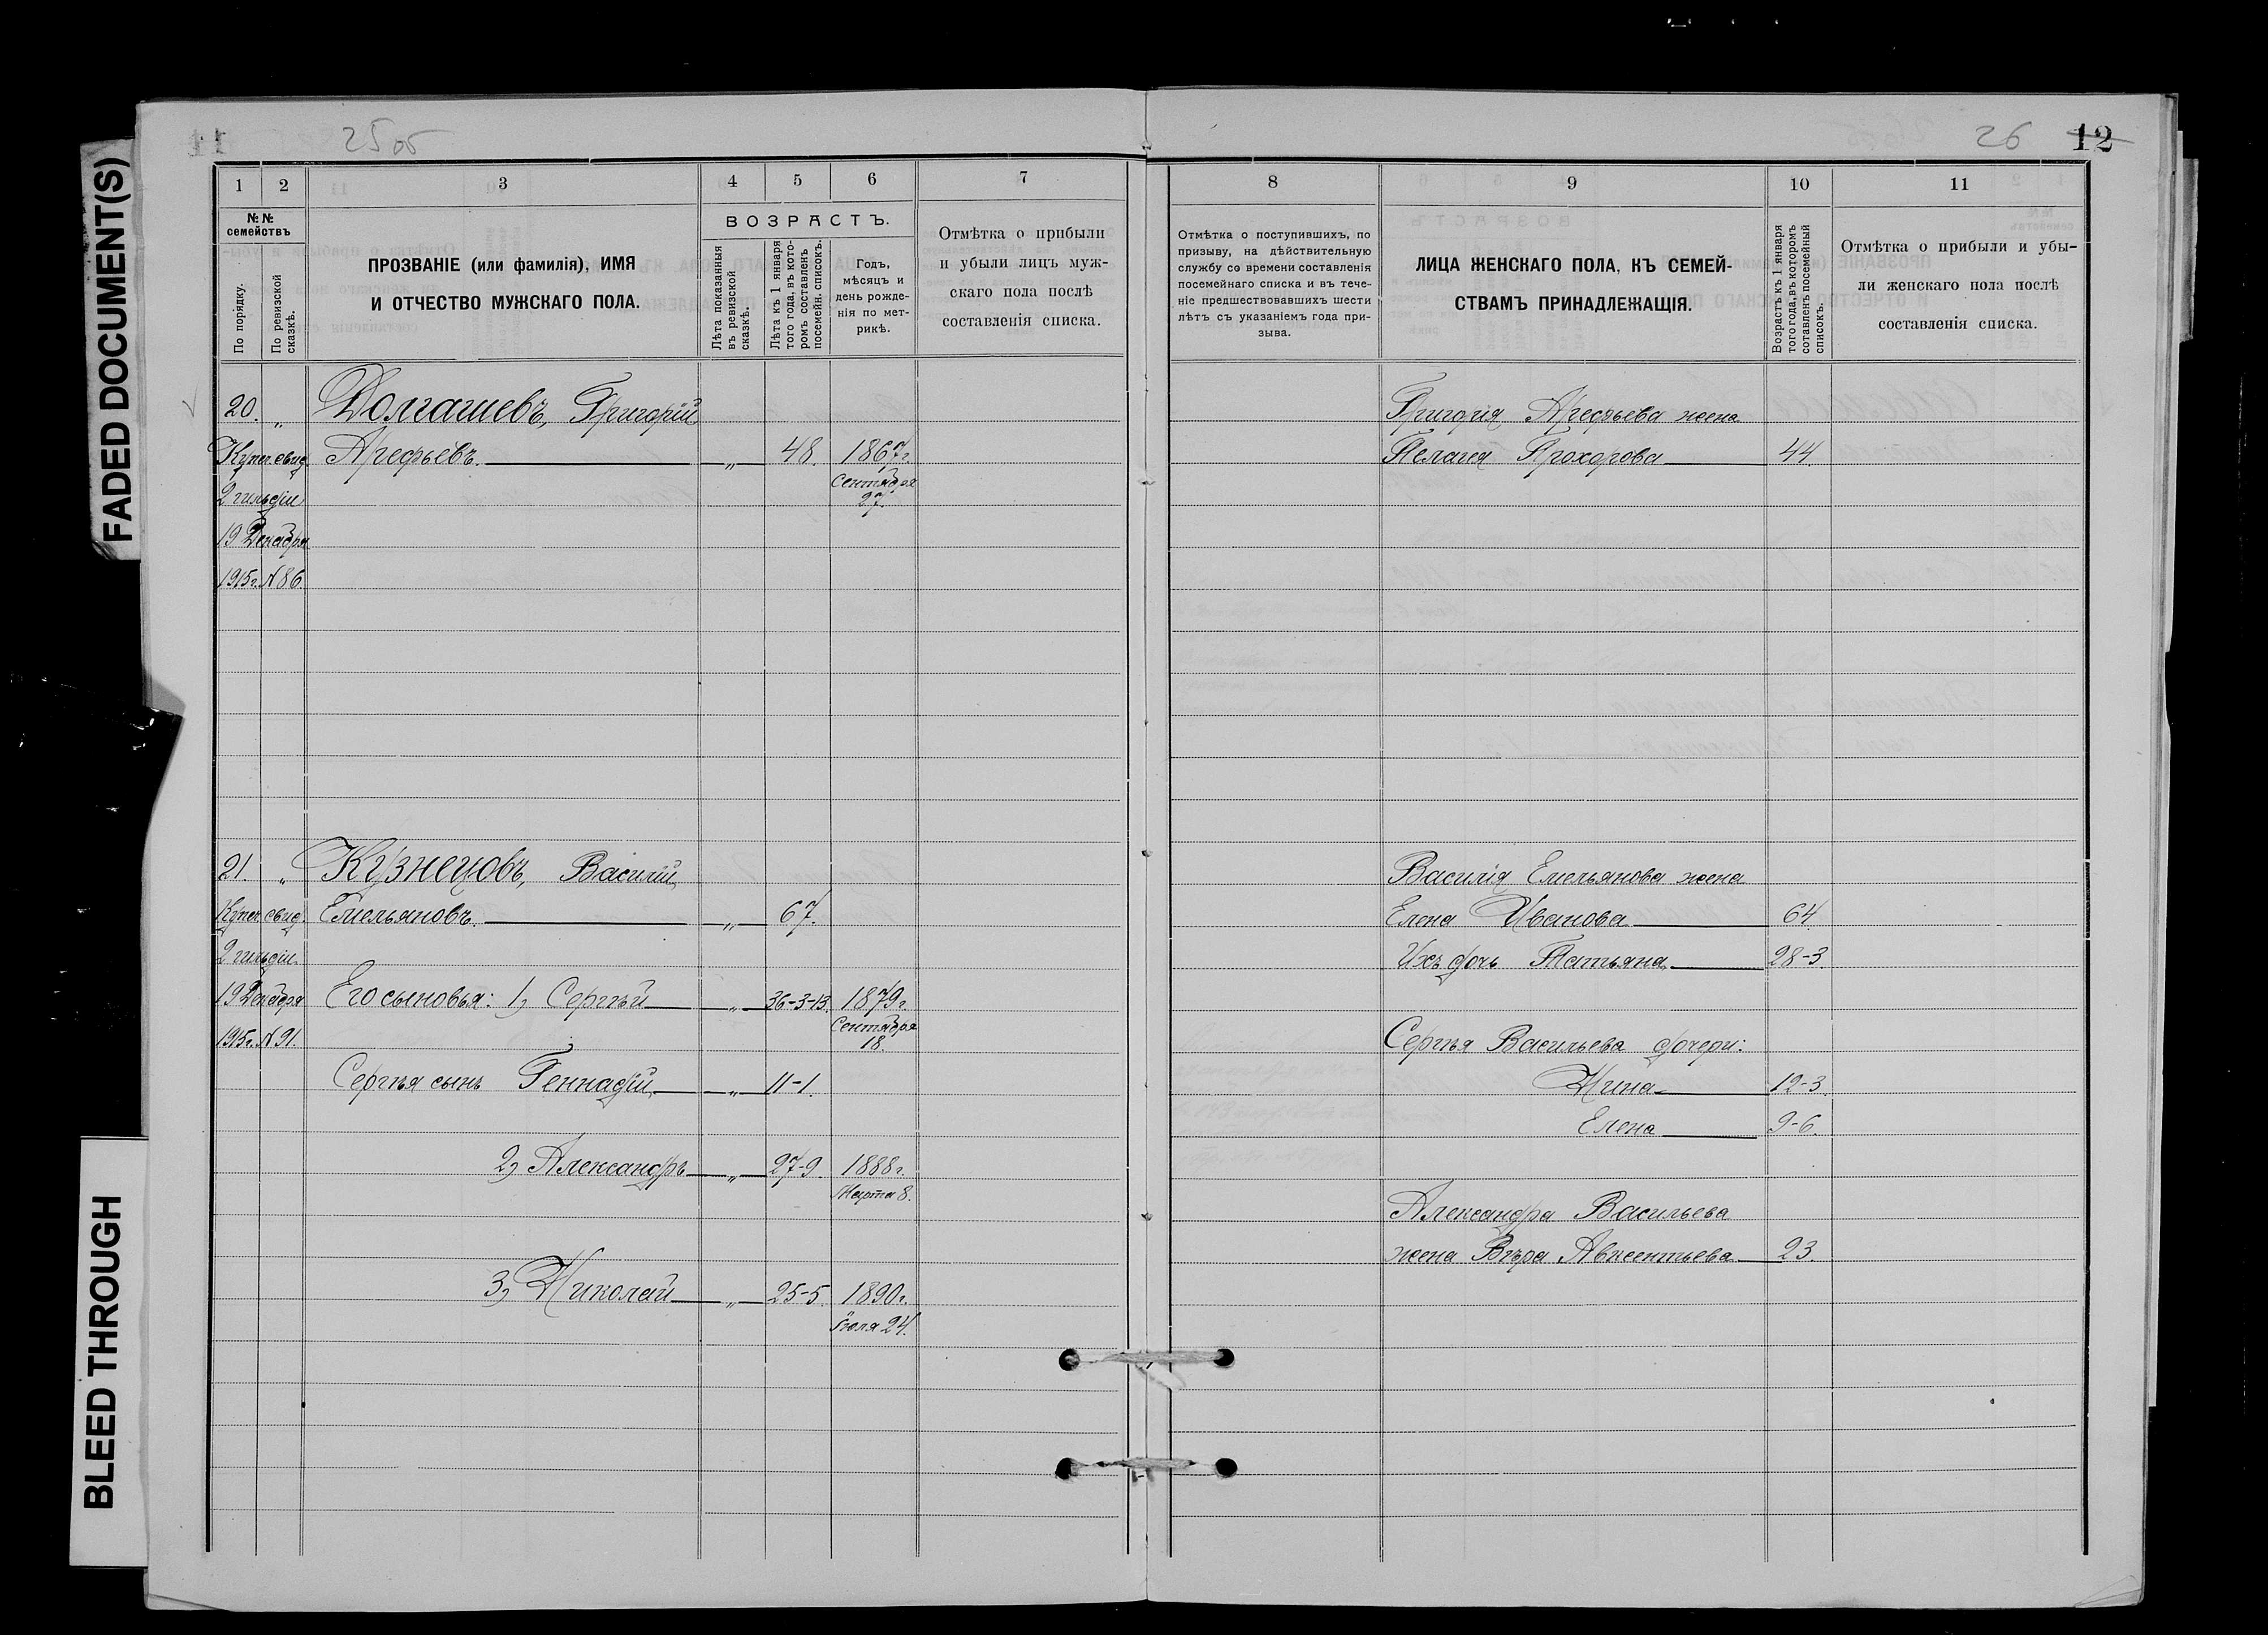 FADED DOCUMENT(S)
BLEED THROUGH
11
25 об
1
2
3
4
5
6
7
№№
семействъ
По порядку.
По ревизской
сказкѣ.
ПРОЗВАНІЕ (или фамилія), ИМЯ
И ОТЧЕСТВО МУЖСКАГО ПОЛА.
ВОЗРАСТЪ.
Лѣта показанныя
въ ревизской
сказкѣ.
Лѣта къ 1 января
того года, въ кото-
ромъ составленъ
посемейн. списокъ.
Годъ,
мѣсяцъ и
день рожде-
нія по мет-
рикѣ.
Отмѣтка о прибыли
и убыли лицъ муж-
скаго пола послѣ
составленія списка.
20. „ Долгашевъ, Григорій
Купеч. свид. Арефьевъ. „ 48. 1867г.
2 гильдіи Сентября
27.
19 Декабря
1915г. N 86.
21. „ Кузнецовъ, Василій
Купеч. свид. Емельяновъ. „ 67.
2 гильдіи.
19 Декабря Его сыновья: 1, Сергѣй „ 36-3-13. 1879г.
Сентября
1915г. N 91. 18.
Сергѣя сынъ Геннадій „ 11-1.
2, Александръ „ 27-9. 1888г.
Марта 8.
3, Николай „ 25-5. 1890г.
Іюля 24.
26 12
8
9
10
11
Отмѣтка о поступившихъ, по
призыву, на дѣйствительную
службу со времени составленія
посемейнаго списка и въ тече-
ніе предшествовавшихъ шести
лѣтъ съ указаніемъ года при-
зыва.
ЛИЦА ЖЕНСКАГО ПОЛА, КЪ СЕМЕЙ-
СТВАМЪ ПРИНАДЛЕЖАЩІЯ.
Возрастъ къ 1 января
того года, въ которомъ
сотавленъ посемейный
списокъ.
Отмѣтка о прибыли и убы-
ли женскаго пола послѣ
составленія списка.
Григорія Арефьева жена
Пелагія Прохорова 44.
Василія Емельянова жена
Елена Иванова 64.
Ихъ дочь Татьяна 28-3.
Сергѣя Васильева дочери:
Нина 12-3.
Елена 9-6.
Александра Васильева
жена Вѣра Авксентьева 23.